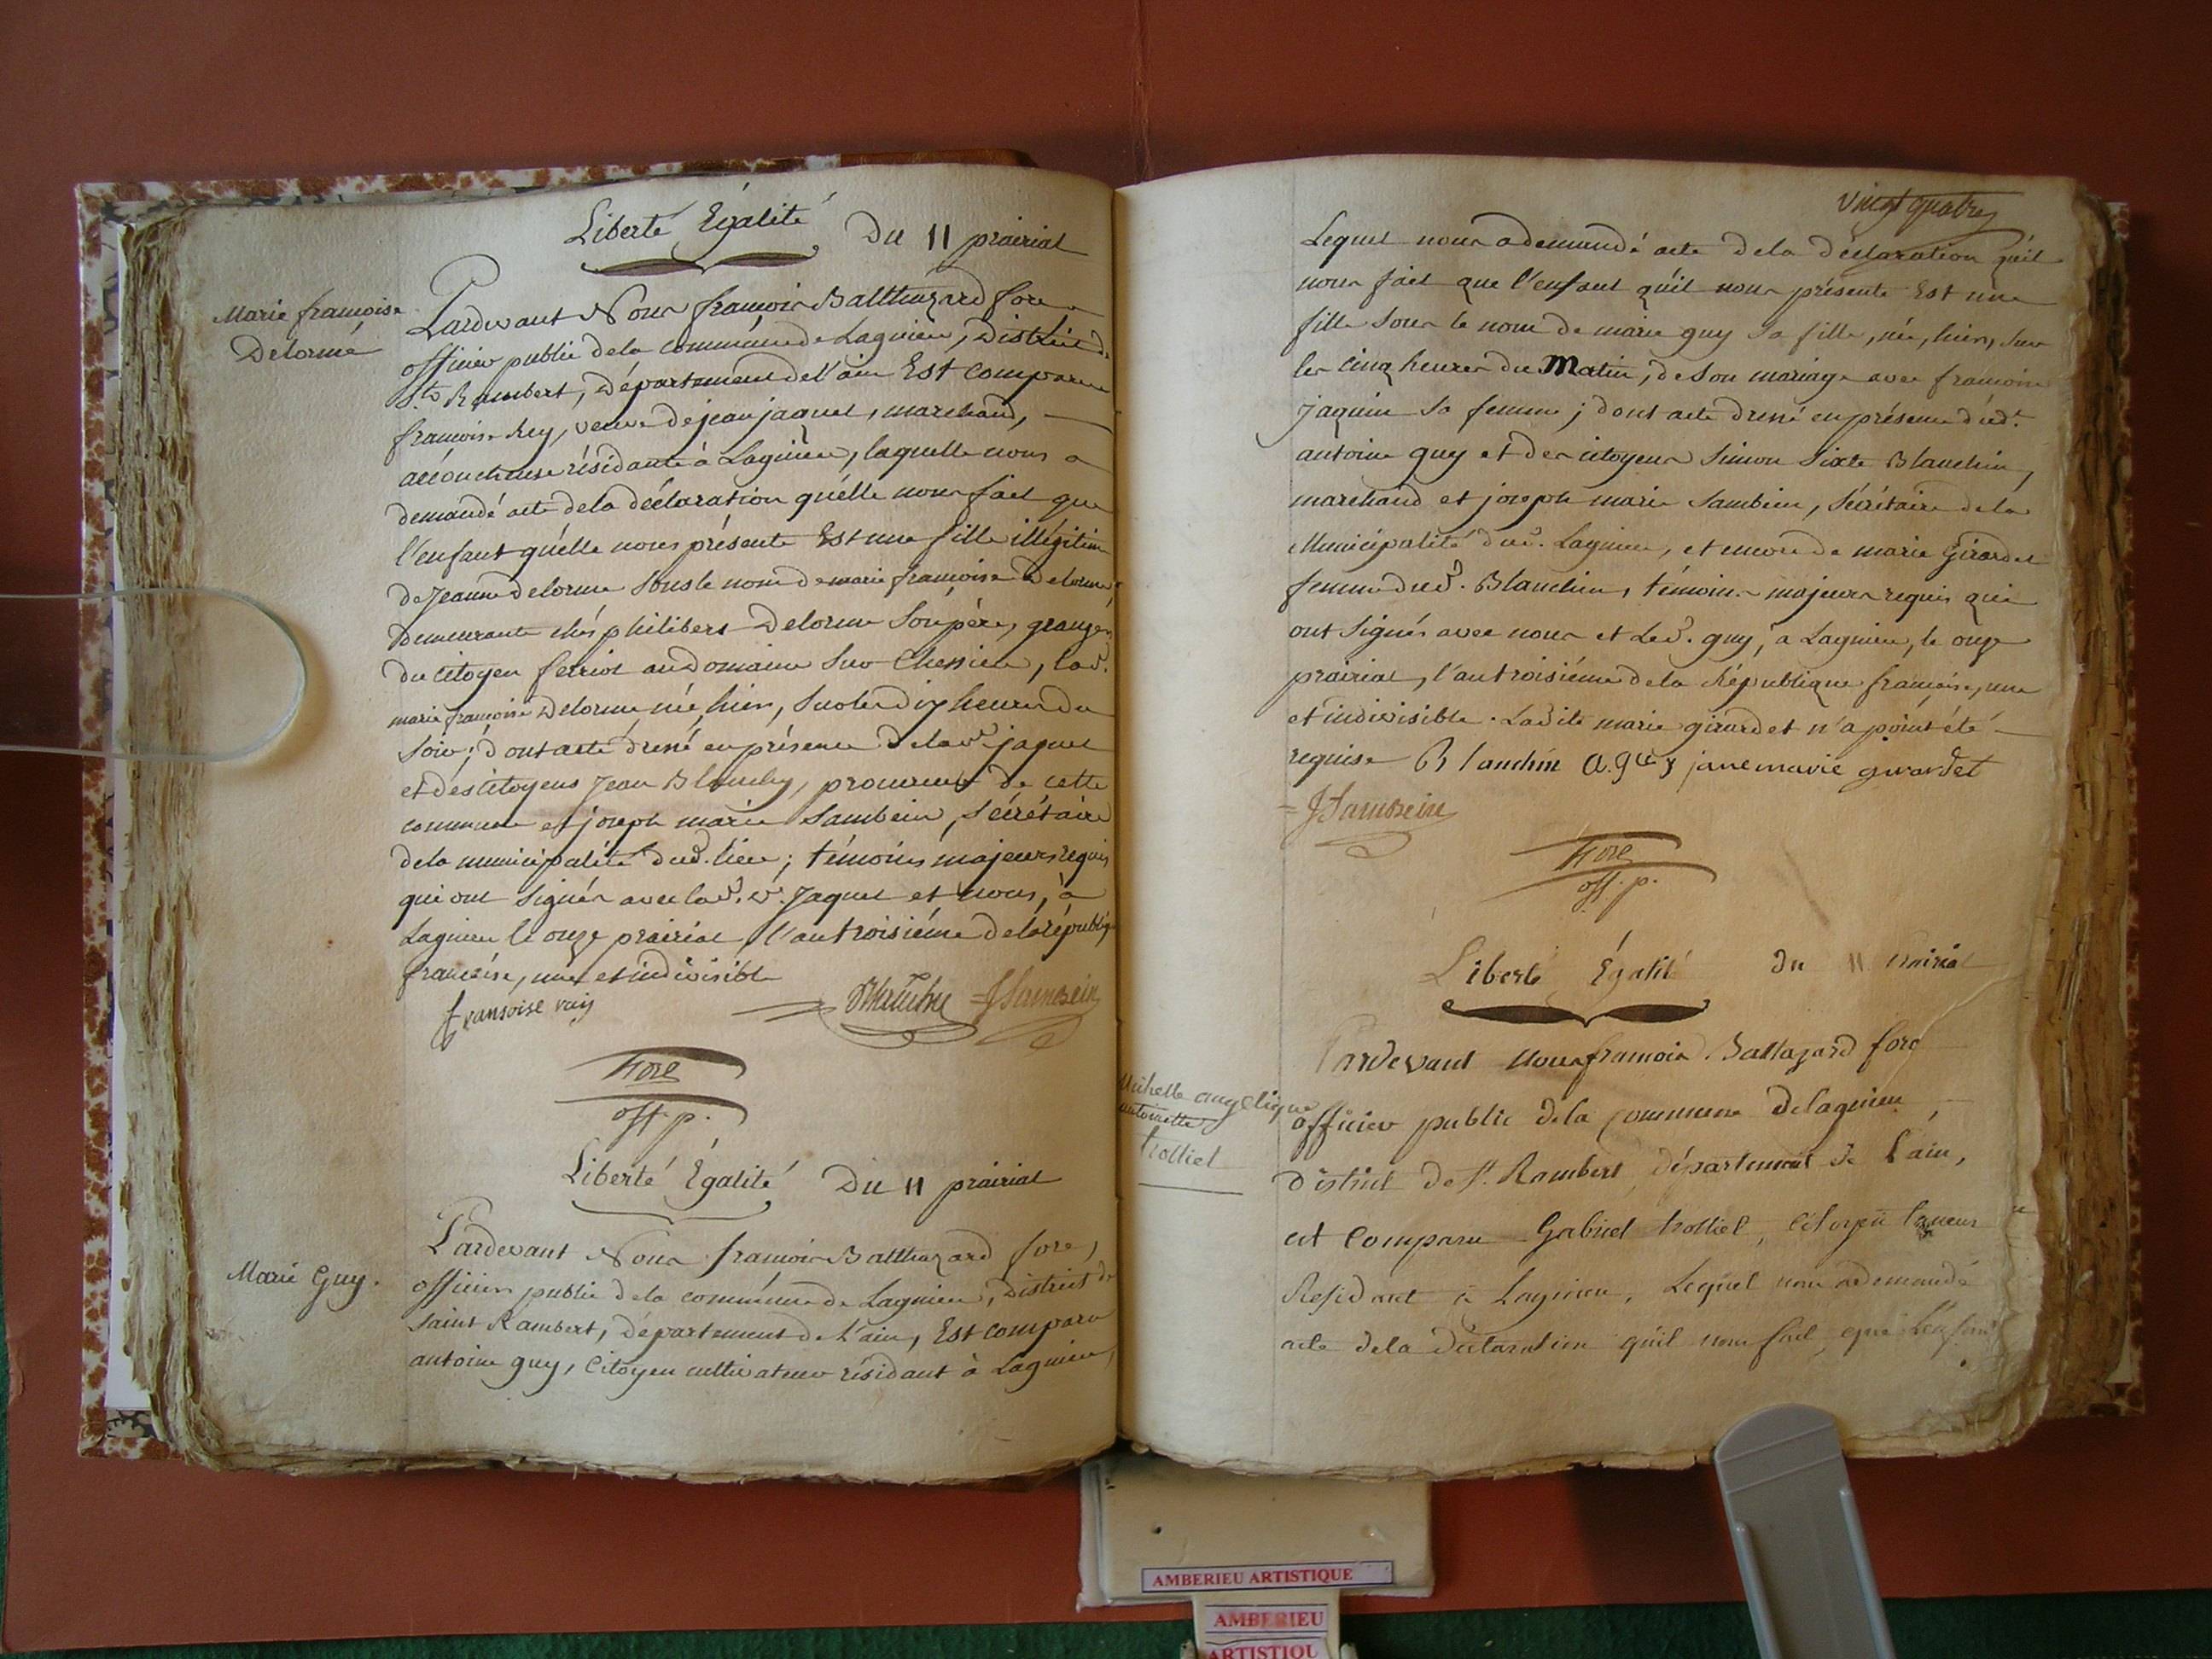 Liberté Égalité Du 11 prairial
Marie françoise
Delorme
Pardevant Nous françois Balthazard fore
officier public dela commune de Lagnieu, District de
St Rambert, Département de l'ain Est comparue
françoise Rey, veuve de jean jaquet, marchand,
accoucheuse résidante à Lagnieu, laquelle nous a
demandé acte dela déclaration qu'elle nous fait que
l'enfant qu'elle nous présente Est une fille illégitime
de Jeanne delorme sous le nom de marie françoise Delorme,
Demeurante chés philibert Delorme son père, granger
du citoyen ferriot au domaine sur Chessieu, lad.
marie françoise Delorme née, hier, sur les dix heures du
soir; dont acte dressé en présence de lad. jaquet
et des citoyens Jean Blanchy, procureur de cette
commune et joseph marie Sambein, Sécrétaire
dela municipalité dud. lieu; témoins majeurs requis
qui ont signés avec lad. ve. Jaquet et nous, à
Lagnieu le onze prairial l'an troisiéme dela républiq
francaise, une et indivisible
fransoise raiy Blanchy JSambein
Fore
off. p.
Liberté Égalité Du 11 prairial
Marie Guy.
Pardevant Nous françois Balthazard fore,
officier public dela commune de Lagnieu, District de
Saint Rambert, Département de l'ain, Est comparu
antoine guy, Citoyen cultivateur résidant à Lagnieu,
vingt quatre
Lequel nous a demandé acte dela déclaration qu'il
nous fait que l'enfant qu'il nous présente Est une
fille sous le nom de marie guy sa fille, née, hier, sur
les cinq heures du Matin, de son mariage avec françoise
Jaquin sa femme; dont acte dressé en présence dud.
antoine guy et des citoyens Simon Sixte Blanchin,
marchand et joseph marie Sambein, Sécrétaire dela
Municipalité dud. Lagnieu, et encore de marie Girardet
femme dud. Blanchin, témoins majeurs requis qui
ont signés avec nous et Led. guy, a Lagnieu, le onze
prairial, l'an troisiéme dela République française, une
et indivisible. Ladite marie girardet n'a point été
requise Blanchin A. guy jane marie girardet
JSambein
Fore
off. p.
Liberté Égalité du 11 prairial
Michelle angelique
antoinette
trolliet
Pardevant Nous francois Baltazard fore
officier public dela commune delagnieu,
district de St. Rambert département de l'ain,
est Comparu Gabriel trolliet, citoyen taneur
Residant à Lagnieu, Lequel nous a demandé
acte dela déclaration qu'il nous fait, que l'enfant
AMBERIEU ARTISTIQUE
AMBERIEU
ARTISTIQU